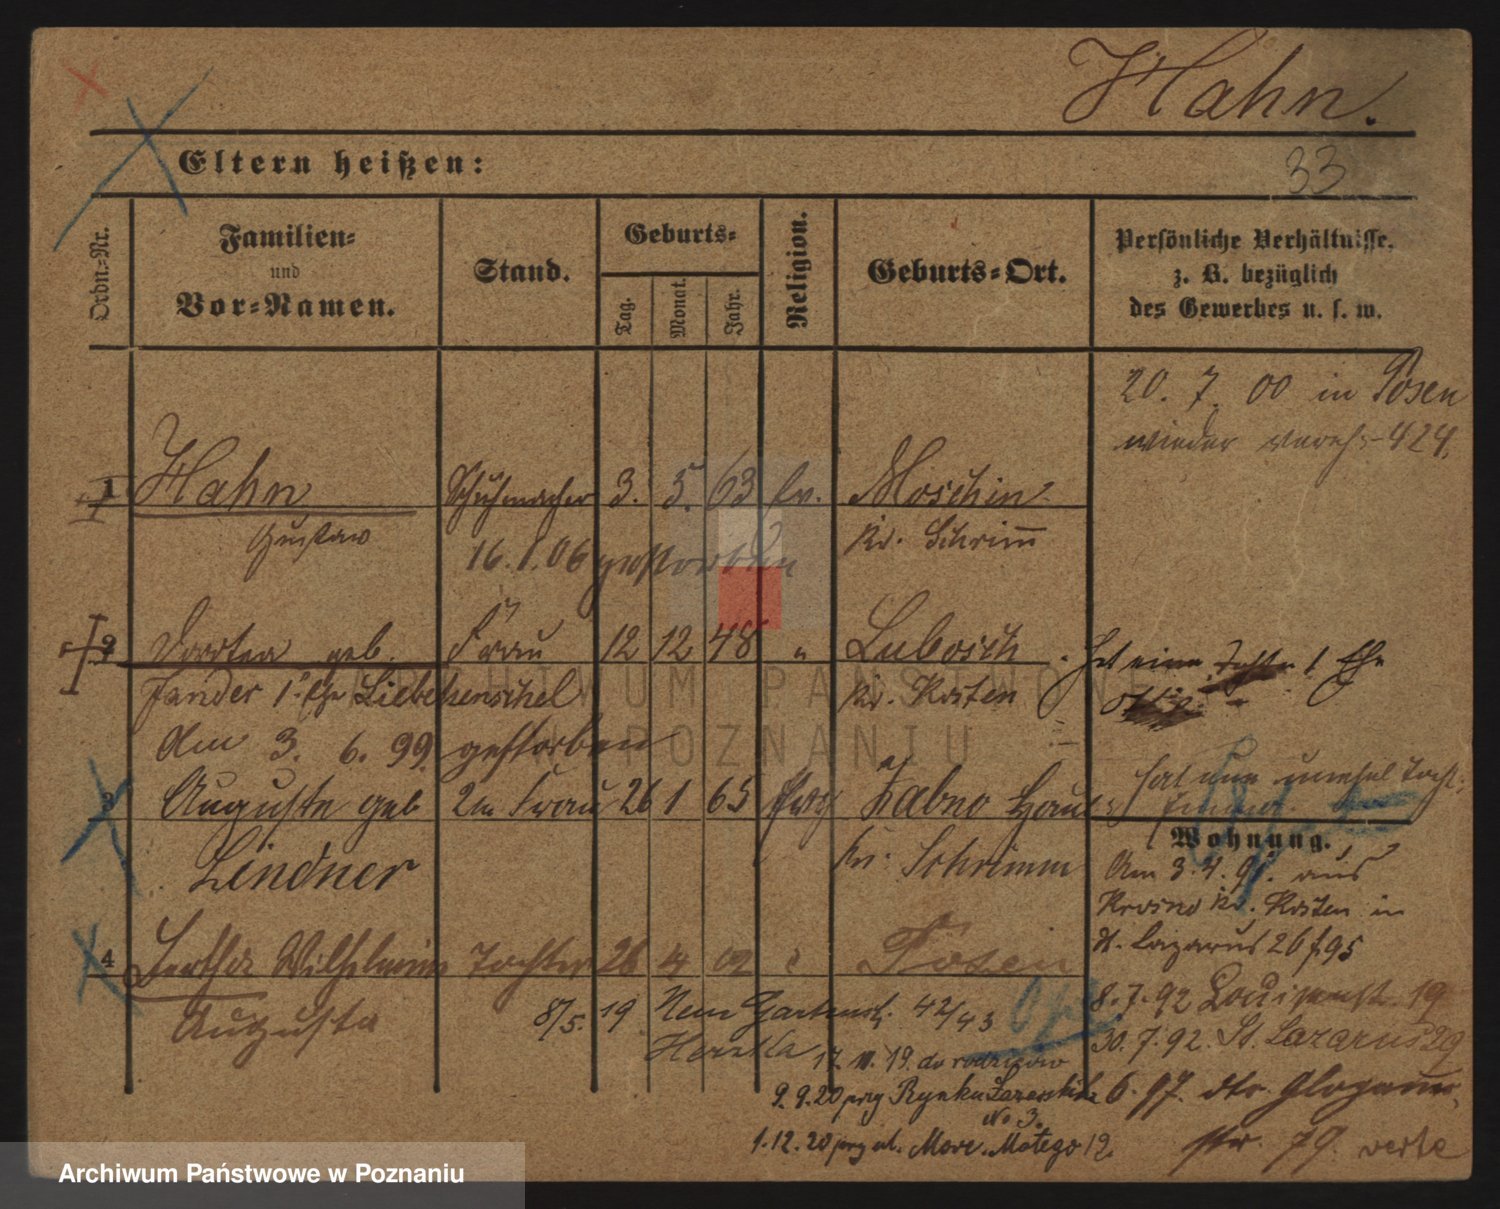 Hahn.
33
Eltern heißen:
Ordn.=Nr.
Familien=
und
Vor=Namen.
Stand.
Geburts=
Tag.
Monat.
Jahr.
Religion.
Geburts=Ort.
Persönliche Verhältnisse.
z. B. bezüglich
des Gewerbes u. s. w.
20. 7. 00 in Posen
wieder vereh. 424.
1 Hahn Schuhmacher 3. 5. 63 ev. Moschin
Gustav Kr. Schrimm
16.1.06 gestorben
2 geb. Frau 12 12 48 " Lubosch
1. Ehe Liebehenschel Kr. Kosten
Hat eine 1 Ehe
Am 3. 6. 99. gestorben
3 Auguste geb 2te Frau 26 1 65 Zabno
Lindner Kr. Schrimm
hat eine
Wohnung.
Am 3.4. aus
Krosno Kr. Kosten in
St. Lazarus 26
4 Wilhelmine Tochter 26 4 02 Posen
Augusta
8/5. 19 Neue Gartenstr. 42/43
8.7.92 19
30.7.92. St. Lazarus 29
17. 19. do rodziców
9.9.20 przy Rynku No 3.
6. 97. Glogauer
str. 79. verte
1.12.20 przy ul. Marc. Motego 12.
ARCHIWUM PAŃSTWOWE
W POZNANIU
Archiwum Państwowe w Poznaniu